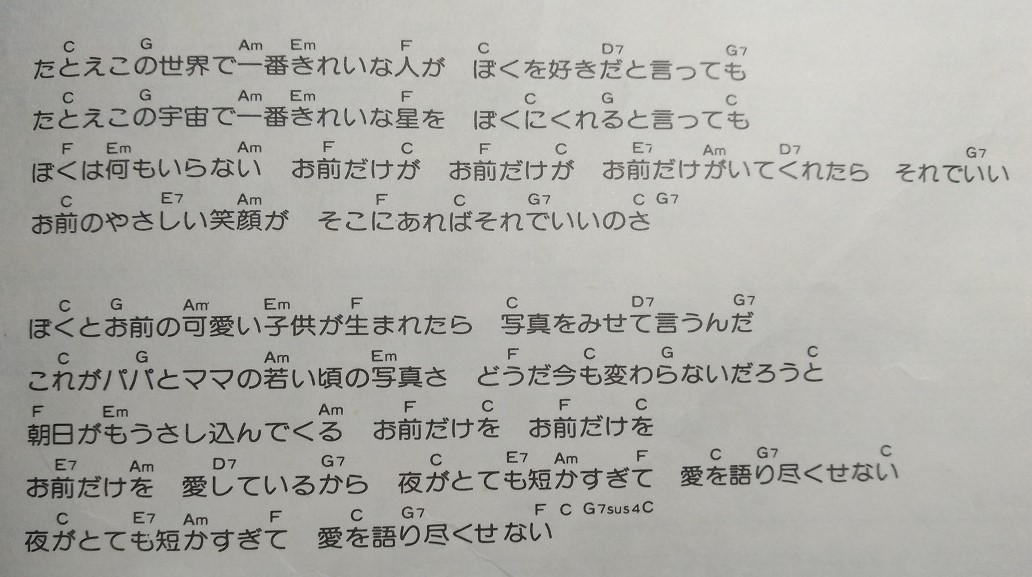 C G Am Em F C D7 G7
たとえこの世界で一番きれいな人が　ぼくを好きだと言っても
C G Am Em F C G C
たとえこの宇宙で一番きれいな星を　ぼくにくれると言っても
F Em Am F C F C E7 Am D7 G7
ぼくは何もいらない　お前だけが　お前だけが　お前だけがいてくれたら　それでいい
C E7 Am F C G7 C G7
お前のやさしい笑顔が　そこにあればそれでいいのさ
C G Am Em F C D7 G7
ぼくとお前の可愛い子供が生まれたら　写真をみせて言うんだ
C G Am Em F C G C
これがパパとママの若い頃の写真さ　どうだ今も変わらないだろうと
F Em Am F C F C
朝日がもうさし込んでくる　お前だけを　お前だけを
E7 Am D7 G7 C E7 Am F C G7 C
お前だけを　愛しているから　夜がとても短かすぎて　愛を語り尽くせない
C E7 Am F C G7 F C G7sus4 C
夜がとても短かすぎて　愛を語り尽くせない